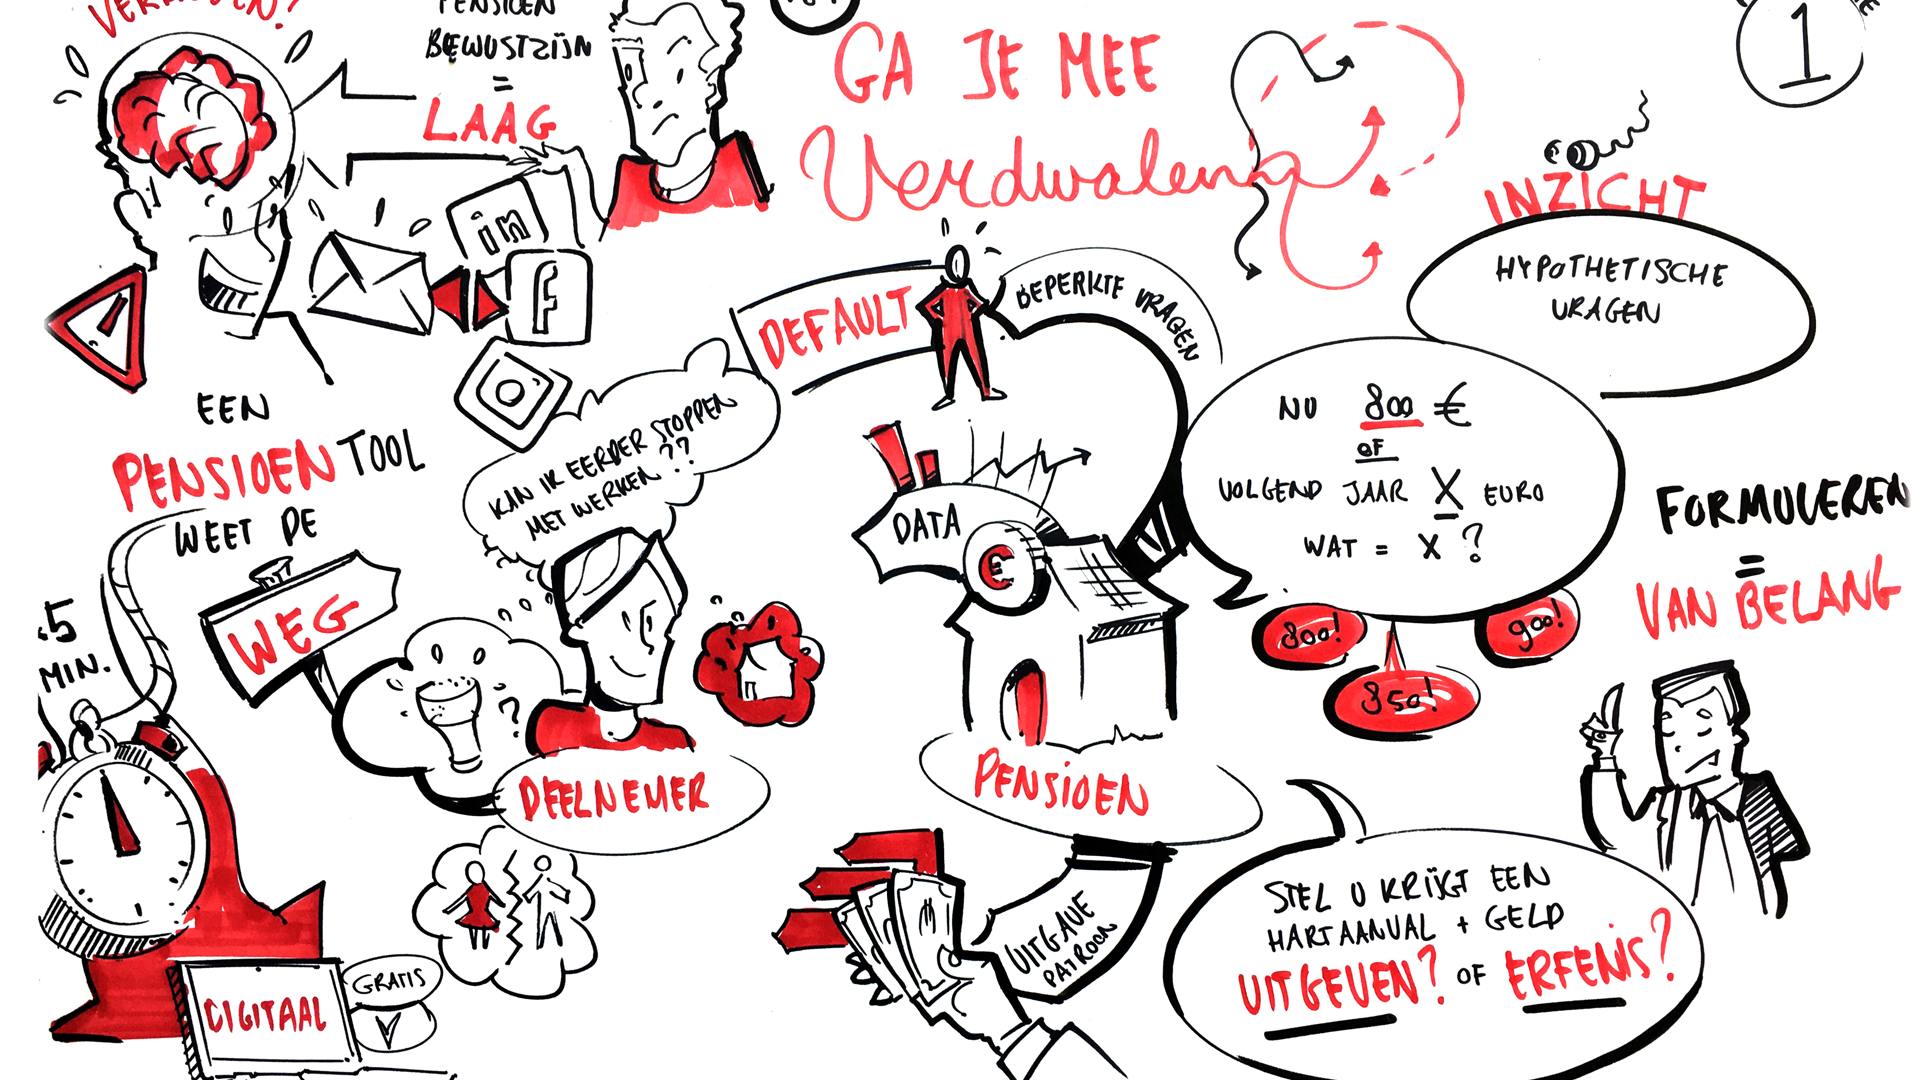 PENSIOEN
BEWUSTZIJN
=
LAAG
GA JE MEE
Verdwalen
1
INZICHT
HYPOTHETISCHE
VRAGEN
in
f
DEFAULT
BEPERKTE VRAGEN
NU 800 €
OF
VOLGEND JAAR X EURO
WAT = X ?
800!
850!
900!
FORMULEREN
=
VAN BELANG
EEN
PENSIOEN TOOL
WEET DE
WEG
KAN IK EERDER STOPPEN
MET WERKEN ??
DATA
€
.5
MIN.
?
DEELNEMER
PENSIOEN
UITGAVE
PATROON
STEL U KRIJGT EEN
HARTAANVAL + GELD
UITGEVEN? OF ERFENIS?
DIGITAAL
GRATIS
V